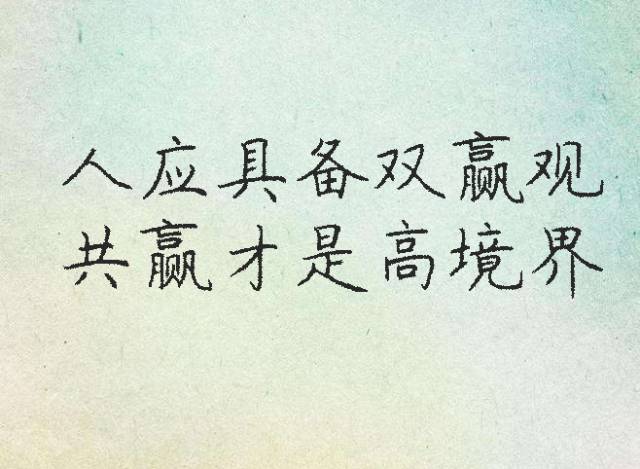 人应具备双赢观
共赢才是高境界